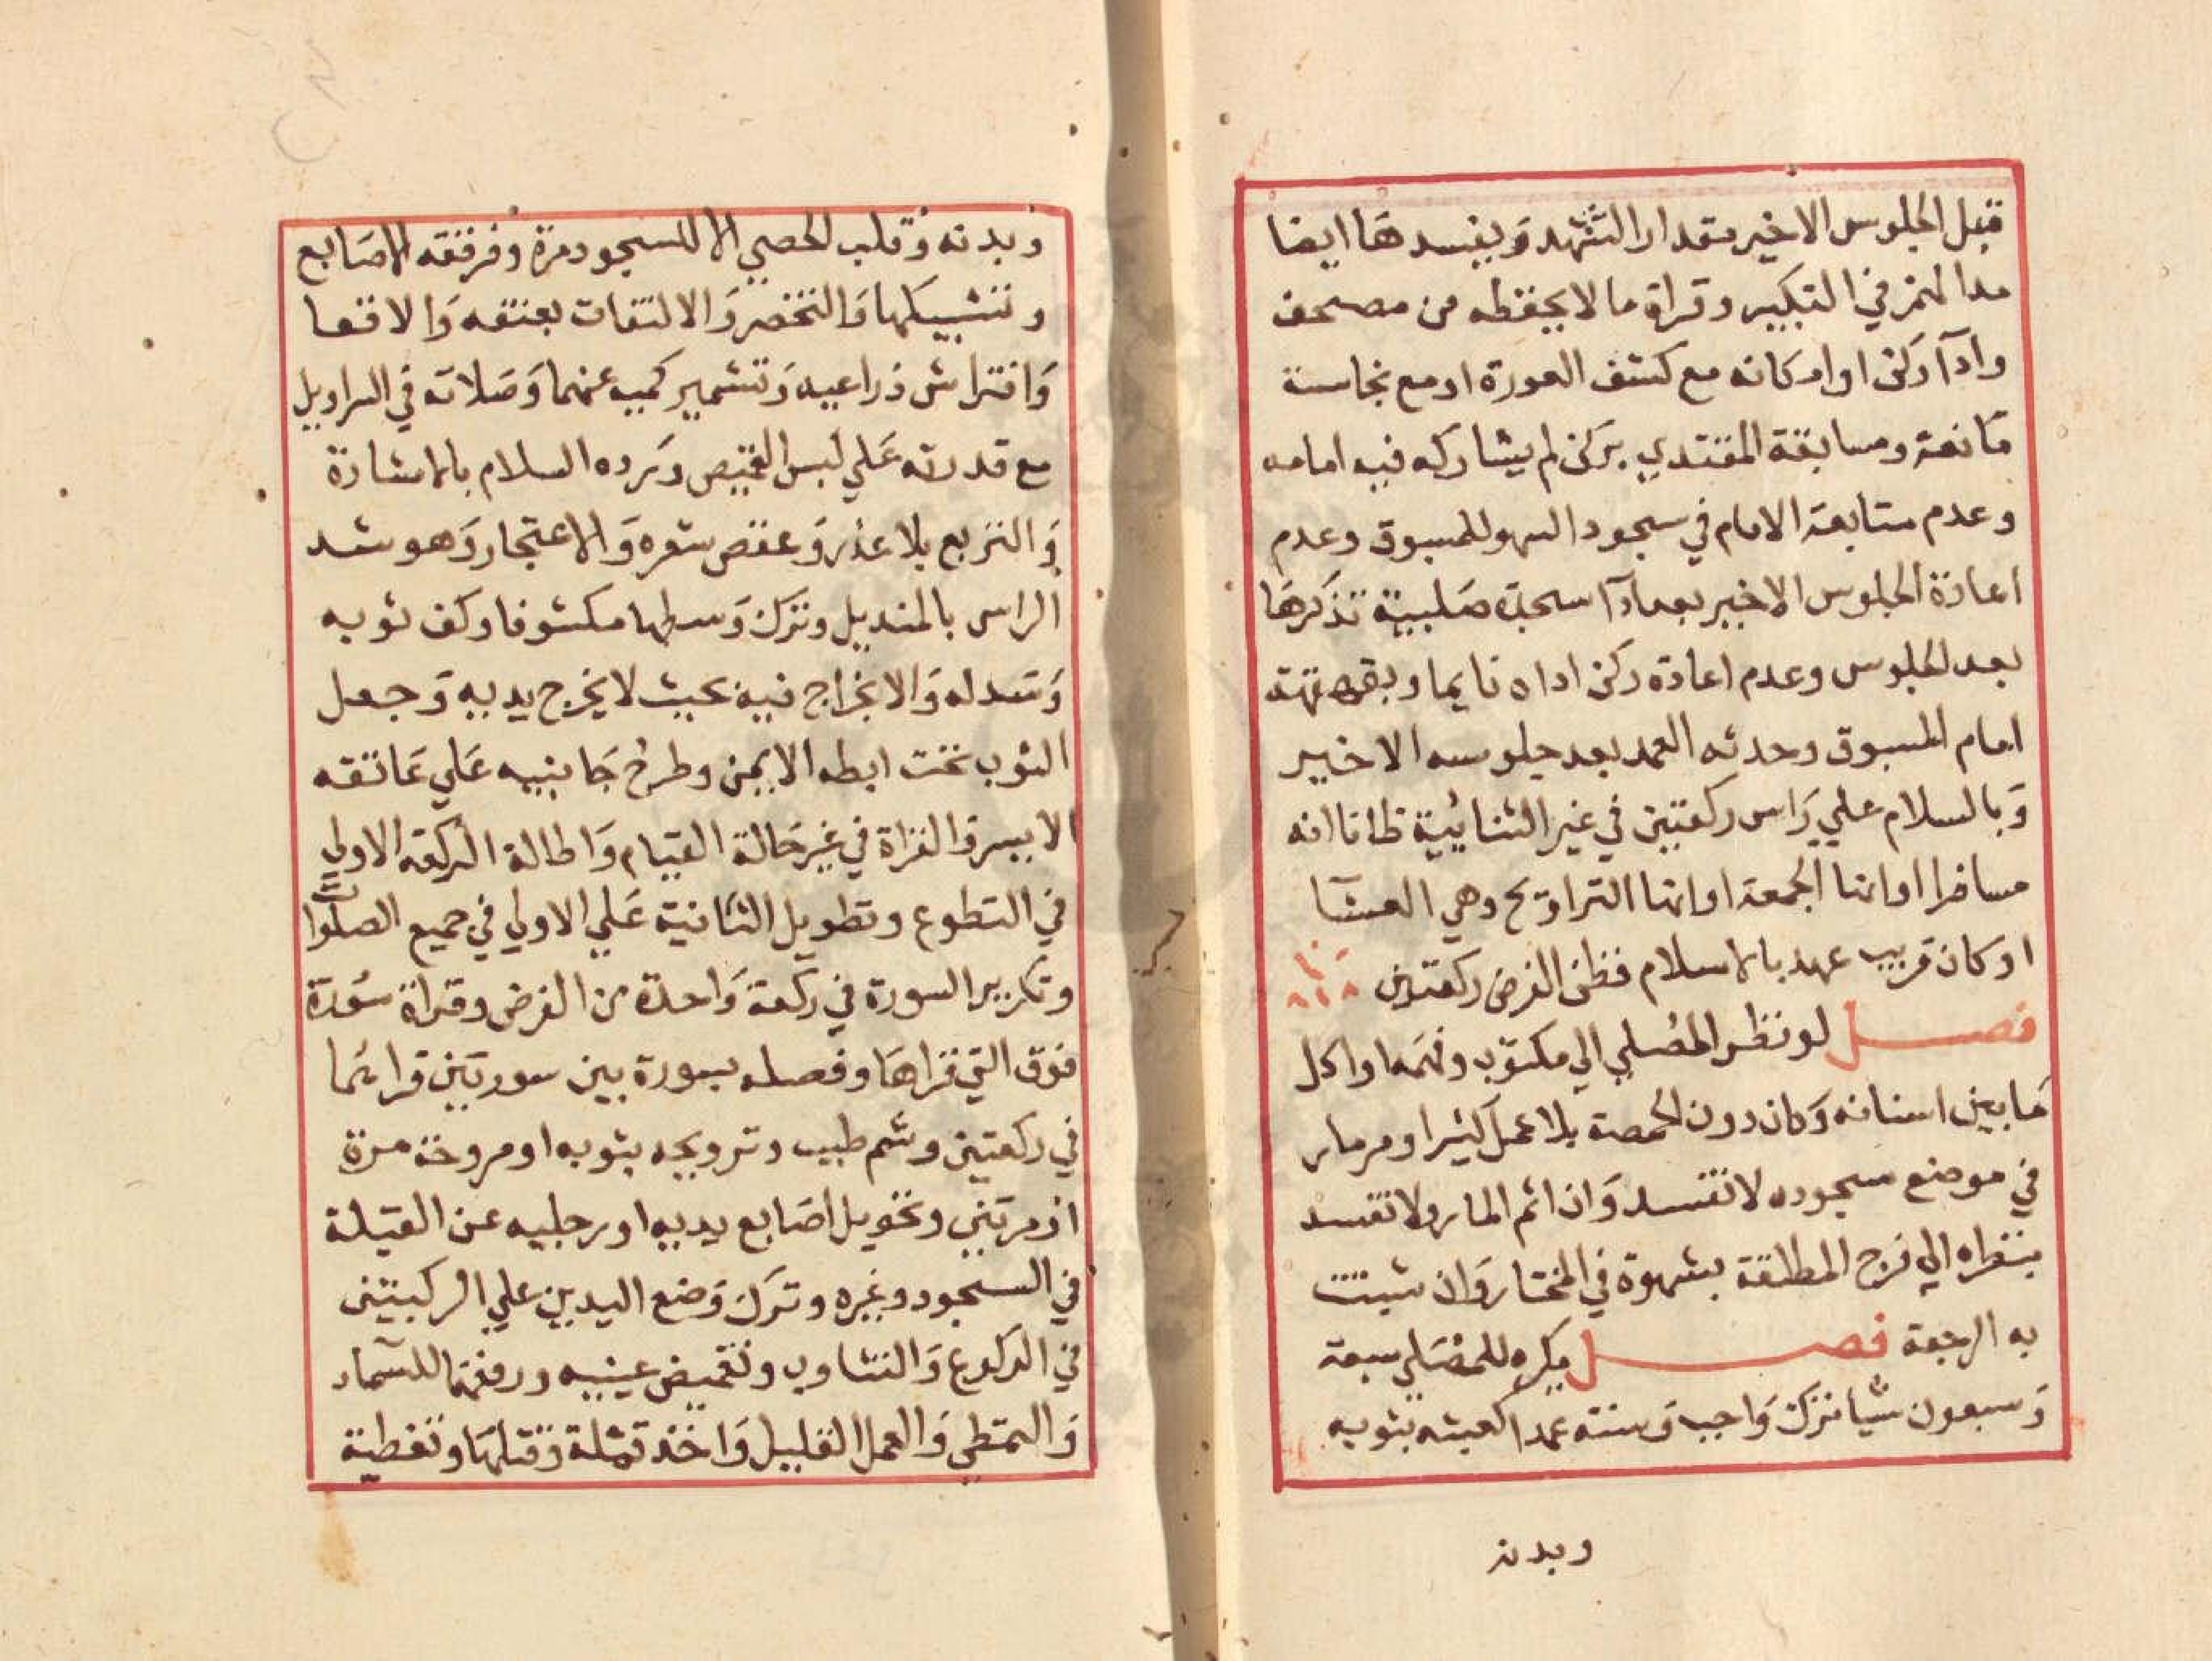 قبل الجلوس الاخير مقدار التشهد ويفسدها ايضا
مد الهمز في التكبير وقراة ما لا يحفظه من مصحف
وادآ ركن او امكانه مع كشف العورة او مع نجاسة
مانعة ومسابقة المقتدي بركن لم يشاركه فيه امامه
وعدم متابعة الامام في سجود السهو للمسبوق وعدم
اعادة الجلوس الاخير بعد ادآ سجدة صلبية تذكرها
بعد الجلوس وعدم اعادة ركن اداه نايما وبقهقهة
امام المسبوق وحدثه العمد بعد جلوسه الاخير
وبالسلام علي راس ركعتين في غير الثنائية ظانا انه
مسافرا او انها الجمعة او انها التراويح وهي العشآ
او كان قريب عهد بالاسلام فظن الفرض ركعتين
فصل لو نظر المصلي الي مكتوب وفهمه او اكل
ما بين اسنانه وكان دون الحمصة بلا عمل كثير او مر مار
في موضع سجوده لا تفسد وان اثم المار ولا تفسد
بنظره الي فرج المطلقة بشهوة في المختار وان ثبتت
به الرجعة فصل يكره للمصلي سبعة
وسبعون شيا ترك واجب وسنة عمدا كعبثه بثوبه
وبدنه
وبدنه وقلب الحصي الا للسجود مرة وفرقعة الاصابع
وتشبيكها والتخصر والالتفات بعنقه والاقعا
وافتراش ذراعيه وتشمير كميه عنهما وصلاته في السراويل
مع قدرته علي لبس القميص ورده السلام بالاشارة
والتربع بلا عذر وعقص شعره والاعتجار وهو شد
الراس بالمنديل وترك وسطها مكشوفا وكف ثوبه
وسدله والاندراج فيه بحيث لا يخرج يديه وجعل
الثوب تحت ابطه الايمن وطرح جانبيه علي عاتقه
الايسر والقراة في غير حالة القيام واطالة الركعة الاولي
في التطوع وتطويل الثانية علي الاولي في جميع الصلوات
وتكرير السورة في ركعة واحدة من الفرض وقراة سورة
فوق التي قراها وفصله بسورة بين سورتين قراهما
في ركعتين وشم طيب وترويحه بثوبه او مروحة مرة
او مرتين وتحويل اصابع يديه او رجليه عن القبلة
في السجود وغيره وترك وضع اليدين علي الركبتين
في الركوع والتثاوب وتغميض عينيه ورفعهما للسماء
والتمطي والعمل القليل واخذ قملة وقتلها وتغطية